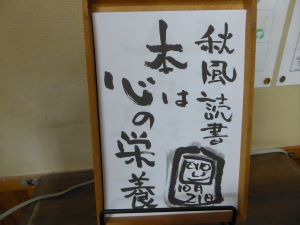 秋風読書
本は
心の栄養
10月
21日